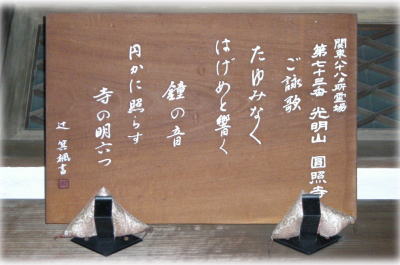 関東八十八ヵ所霊場
第七十三番 光明山 圓照寺
ご詠歌
たゆみなく
はげめと響く
鐘の音
円かに照らす
寺の明六つ
辻 箕楓書